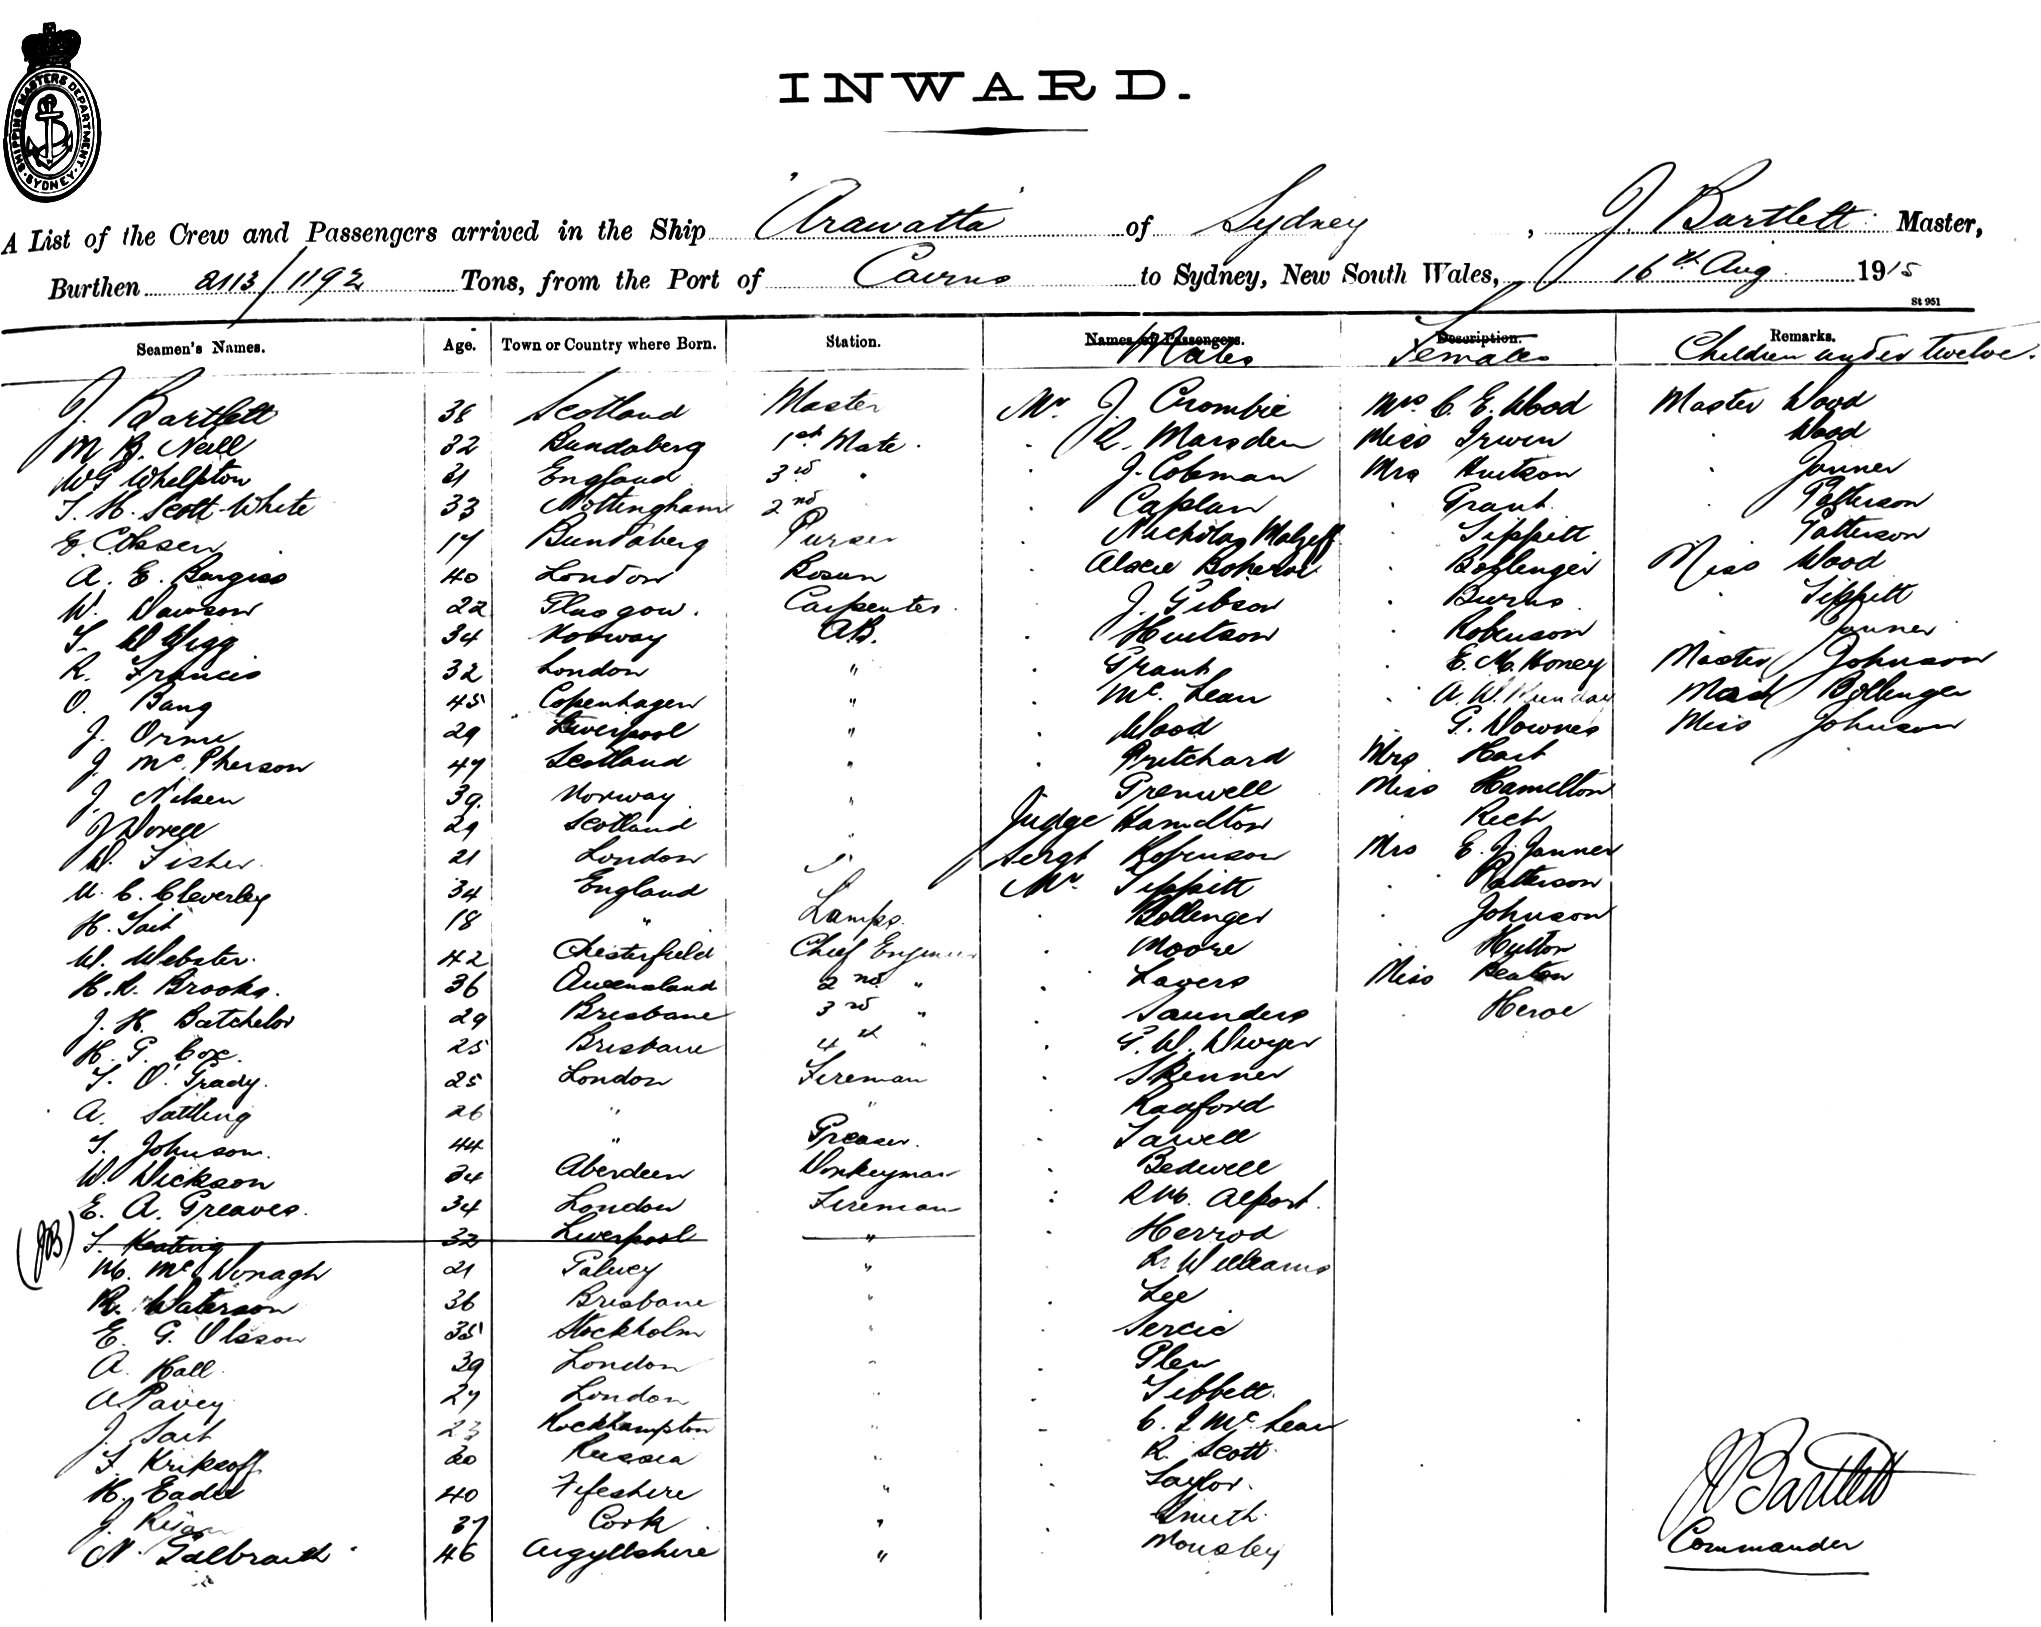 SHIPPING MASTERS DEPARTMENT
SYDNEY
INWARD.
A List of the Crew and Passengers arrived in the Ship 'Arawatta' of Sydney, J. Bartlett Master,
Burthen 2113/1192 Tons, from the Port of Cairns to Sydney, New South Wales, 16th Aug 1915
St 951
Seamen's Names. Age. Town or Country where Born. Station. Names of Passengers. Description. Remarks.
Males Females Children under twelve.
J. Bartlett 38 Scotland Master Mr. J. Crombie Mrs C. E. Wood Master Wood
M B. Neill 32 Bundaberg 1st Mate. R. Marsden Miss Irwin Wood
WG Whelpton 21 England 3rd " J. Coleman Mrs Huitson Janner
T. H. Scott-White 33 Nottingham 2nd Caplan Grant Patterson
E. Cossen 17 Bundaberg Purser Nicholas Malzeff Tippitt Patterson
A. E. Burgess 40 London Bosun Alexie Bollenger Miss Wood
W. Dawson 22 Glasgow. Carpenter. J. Gibson Burns Tippitt
T. W 34 Norway AB. Huitson Robinson Janner
R. Francis 32 London " Grant E. M. Honey Master Johnson
O. Bang 45 Copenhagen " Mc Lean A. W. Bollenger
J. Orme 29 Liverpool " Wood G. Downes Miss Johnson
J. Mc Pherson 47 Scotland " Pritchard Mrs Hart
J. Nilsen 39. Norway " Grenwell Miss Hamilton
J Dorell 29 Scotland " Judge Hamilton Rich
W. Fisher. 21 London " Sergt Robinson Mrs E. J. Janner
W. C. Cleverley 34 England Mr. Tippitt Patterson
H. Tait 18 " Lamps. Bollenger Johnson
W. Webster. 42 Chesterfield Chief Engineer Moore Hutton
H. A. Brooks. 36 Queensland 2nd " Lavers Miss Keaton
J. H. Batchelor 29 Brisbane 3rd " Saunders Heroe
H. G. Cox. 25 Brisbane 4th " G. W. Dwyer
T. O'Grady. 25 London Fireman Skenner
A. Sattling 26 " " Radford
T. Johnson. 44 " Greaser. Tawell
W. Dickson 34 Aberdeen Donkeyman Bedwell
E. A. Greaves. 34 London Fireman R W. Alport.
(JB) T. Keating 32 Liverpool " Herrod
M. Mc Donagh 21 Galway " L. Williams
R. Waterson 36 Brisbane " Lee
E. G. Olsson 35 Stockholm " Sercie
A. Hall. 39 London " Glen
A Pavey 27 London " Tibbett.
J. Tait 23 Rockhampton " C. I Mc Lean
F. Krikeoff 20 Russia R. Scott
H. Eadie 40 Fifeshire " Taylor.
J. 37 Cork. " Smith.
N. Galbraith 46 Argyllshire " Mousley
J Bartlett
Commander